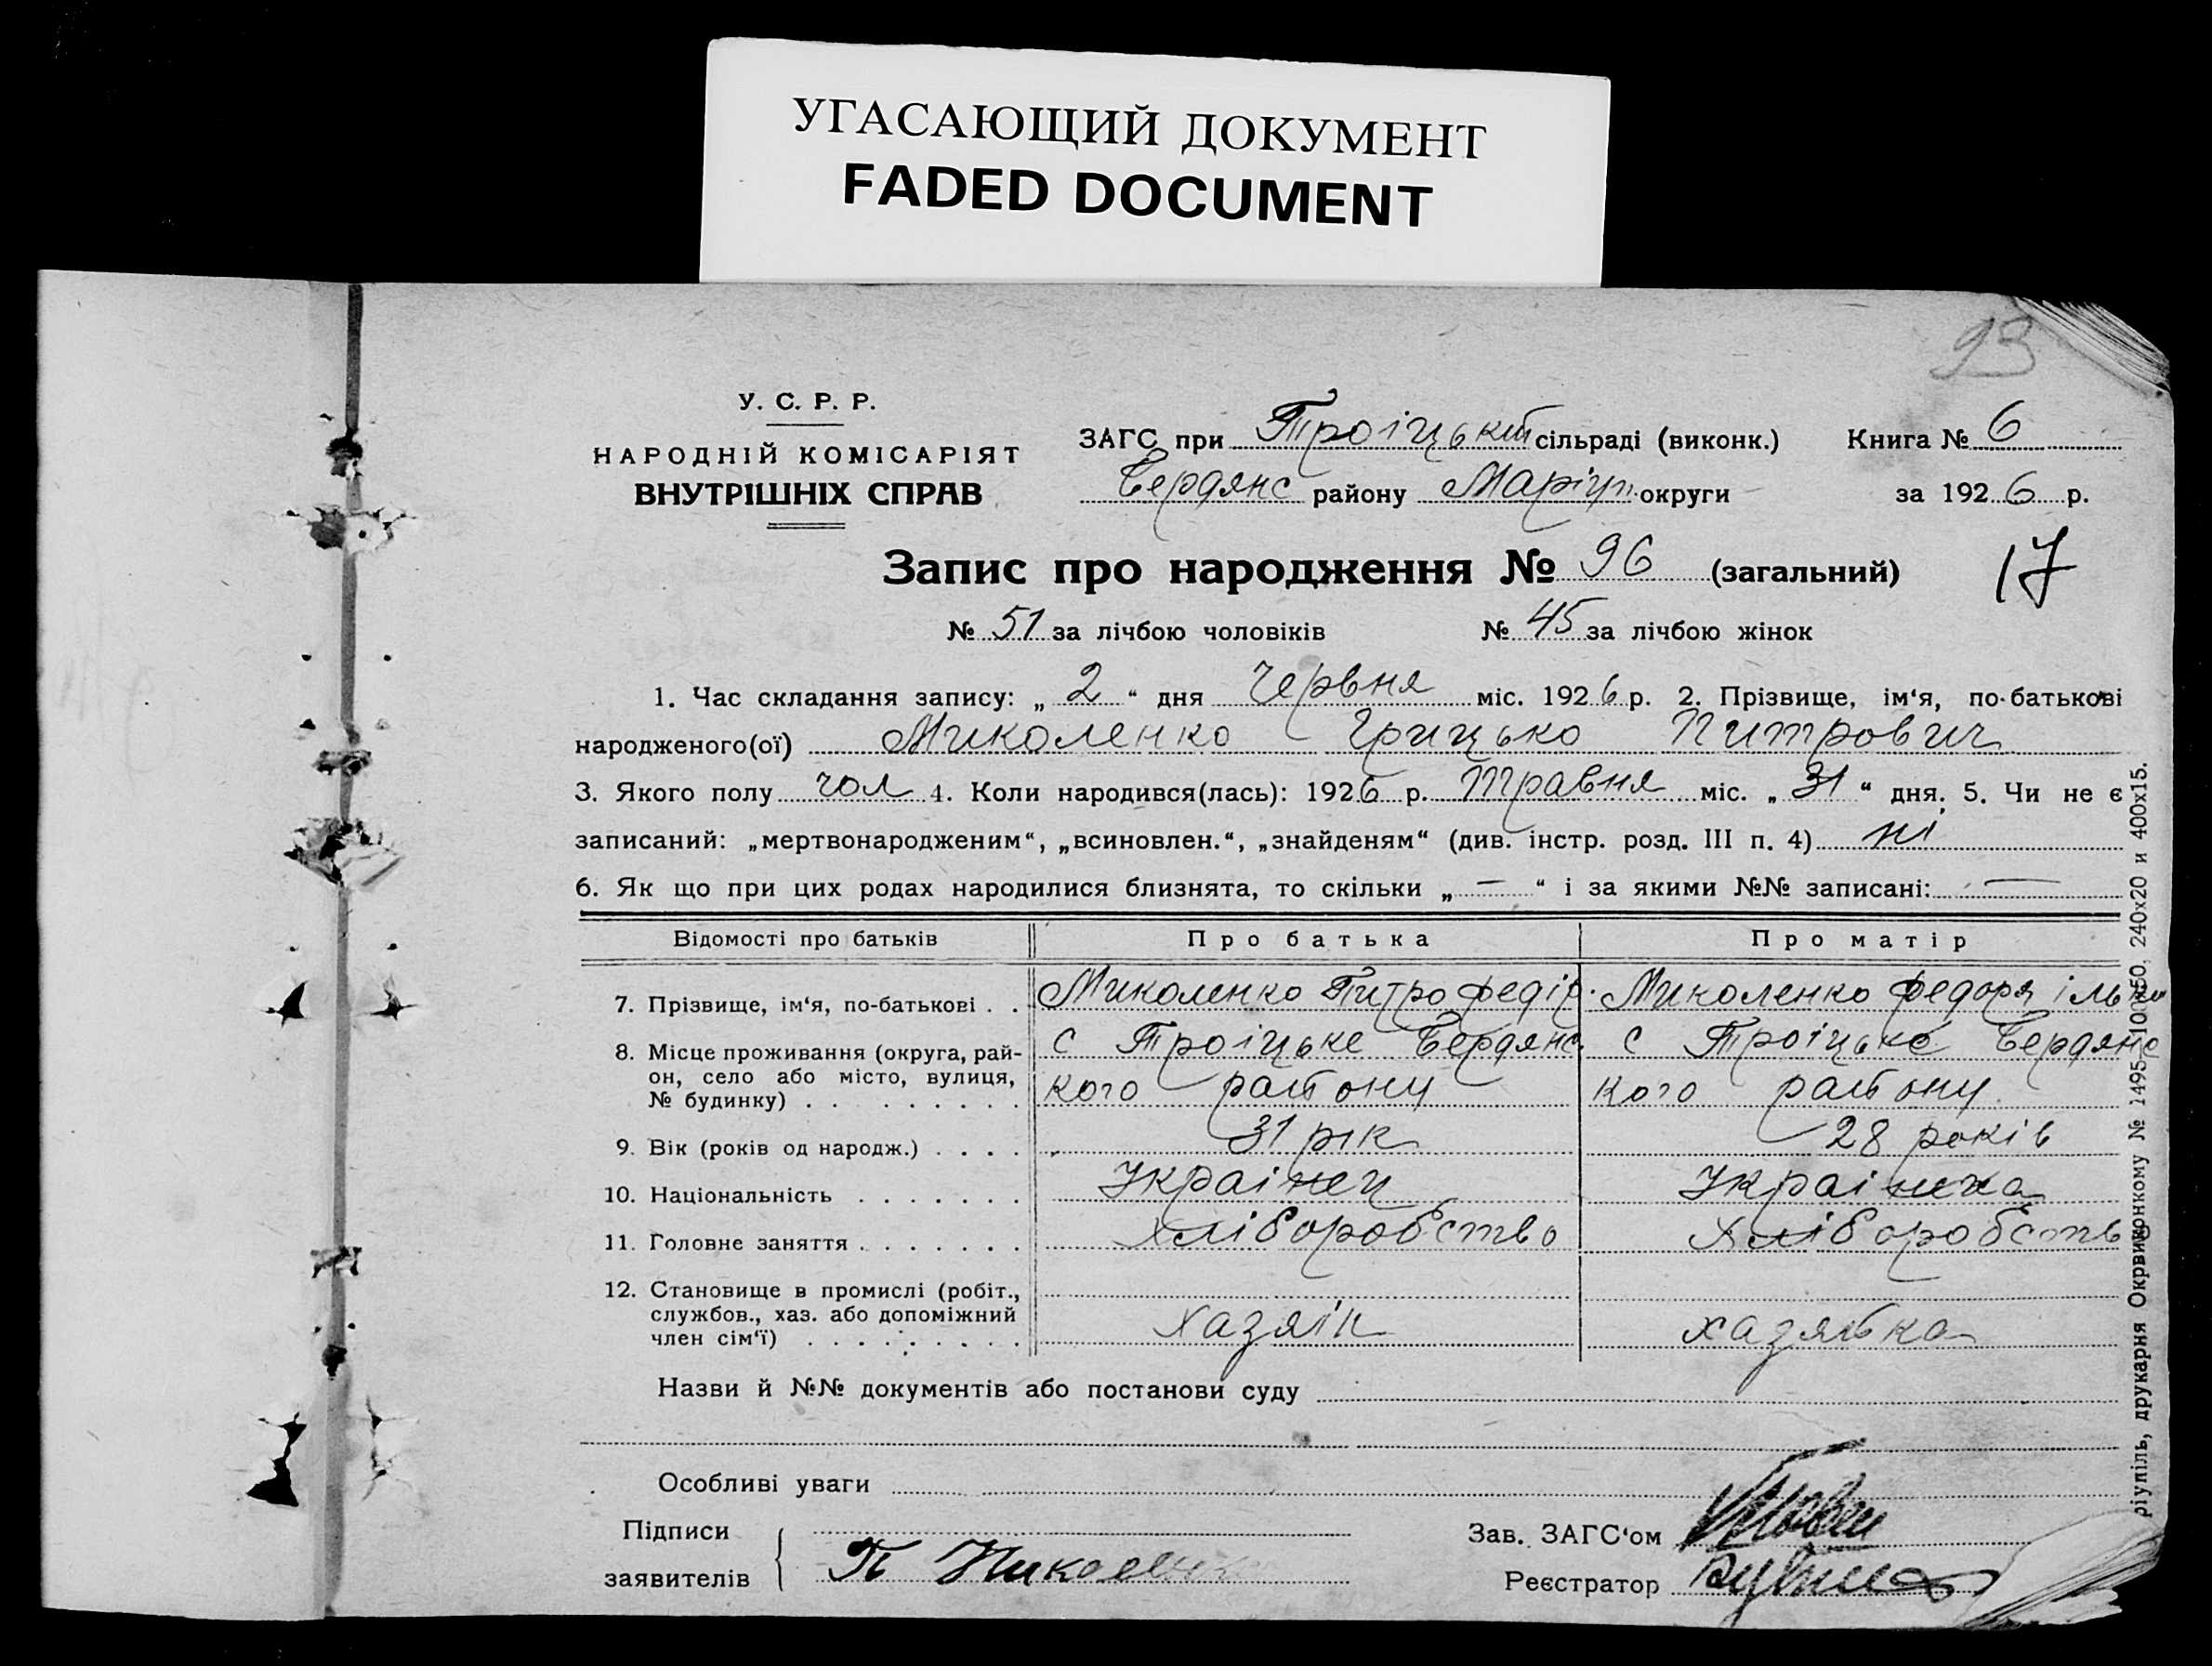 УГАСАЮЩИЙ ДОКУМЕНТ
FADED DOCUMENT
93
У. С. Р. Р.
НАРОДНІЙ КОМІСАРІЯТ
ВНУТРІШНІХ СПРАВ
ЗАГС при Троіцькій сільраді (виконк.) Книга № 6
Бердянс району Маріуп. округи за 1926 р.
Запис про народження № 96 (загальний) 17
№ 51 за лічбою чоловіків № 45 за лічбою жінок
1. Час складання запису: „ 2 “ дня Червня міс. 1926 р. 2. Прізвище, ім‘я, по-батькові
народженого(ої) Миколенко Грицько Питрович
3. Якого полу чол 4. Коли народився(лась): 1926 р. Травня міс. „ 31 “ дня. 5. Чи не є
записаний: „мертвонародженим“, „всиновлен.“, „знайденям“ (див. інстр. розд. III п. 4) ні
6. Як що при цих родах народилися близнята, то скільки „ — “ і за якими №№ записані: —
Відомості про батьків Про батька Про матір
7. Прізвище, ім‘я, по-батькові . . Миколенко Питро Федір. Миколенко Федоря Ільни
8. Місце проживання (округа, рай-он, село або місто, вулиця, № будинку) . . . . . . . . . с Троіцьке Бердянс с Троіцьке Бердянс
кого району кого району
9. Вік (років од народж.) . . . . 31 рік 28 років
10. Національність . . . . . . . Украінец Украінка
11. Головне заняття . . . . . . . Хліборобство Хліборобств
12. Становище в промислі (робіт.,
службов., хаз. або допоміжний
член сім‘ї) . . . . . . . . . Хазяїн хазяйка
Назви й №№ документів або постанови суду
Особливі уваги
Підписи
заявителів П Николенк
Зав. ЗАГС‘ом
Реєстратор
ріупіль, друкарня Окрвиконкому № 1495—100×50, 240х20 и 400х15.